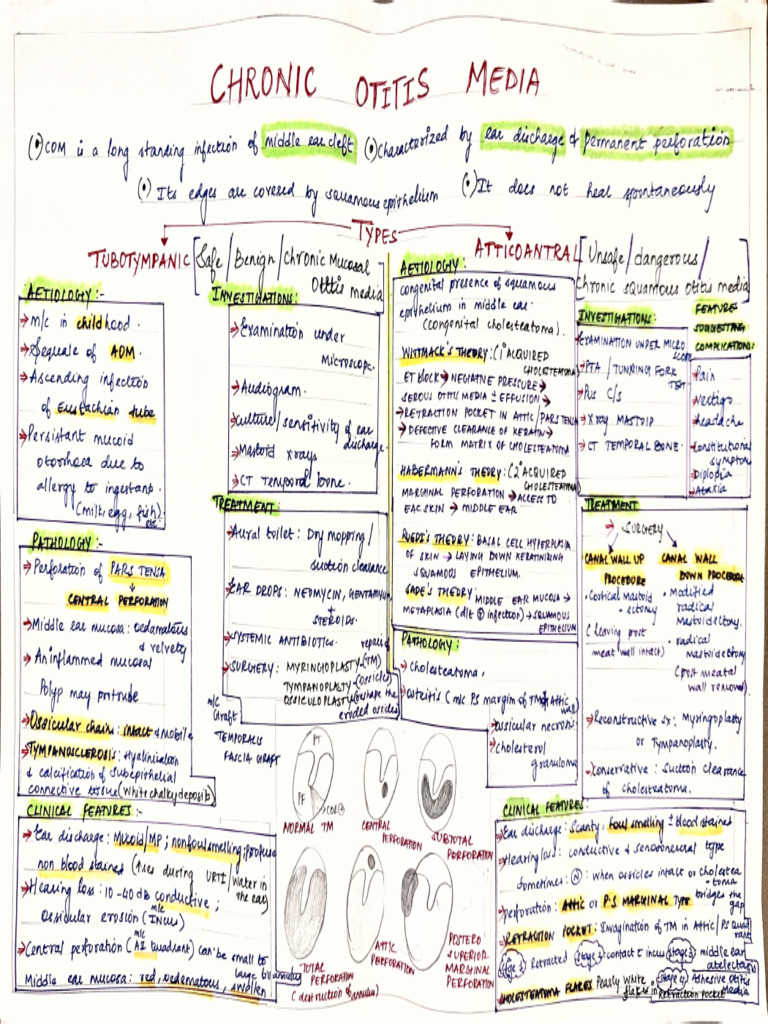 CHRONIC OTITIS MEDIA
(•) COM is a long standing infection of middle ear cleft (•) Characterized by ear discharge & permanent perforation
(•) Its edges are covered by squamous epithelium (•) It does not heal spontaneously
TYPES
TUBOTYMPANIC [Safe/Benign/Chronic Mucosal
Otitis media
AETIOLOGY :-
→ m/c in childhood.
→ Sequale of AOM.
→ Ascending infection
of Eustachian tube
→ Persistant mucoid
otorrhoea due to
allergy to ingestant.
(milk, egg, fish) etc
PATHOLOGY :-
→ Perforation of PARS TENSA
↓
CENTRAL PERFORATION
→ Middle ear mucosa: oedamatous
& velvety
→ An inflammed mucosal
Polyp may protrude
→ Ossicular chain: intact & mobile
→ TYMPANOSCLEROSIS: Hyalinisation
& calcification of subepithelial
connective tissue (white chalky deposits)
CLINICAL FEATURES :-
→ Ear discharge: Mucoid/MP; nonfoul smelling; profuse
non blood stained (↑ses during URTI/water in
the ear)
→ Hearing loss: 10-40 dB conductive;
m/c
Ossicular erosion (INCUS)
→ Central perforation (m/c AI quadrant) can be small to
large by annulus
Middle ear mucosa: red, oedematous, swollen
INVESTIGATIONS:
→ Examination under
Microscope.
→ Audiogram.
→ Culture/sensitivity of ear
discharge
→ Mastoid xrays
→ CT Temporal bone.
TREATMENT:
→ Aural toilet: Dry mopping/
suction clearance
→ EAR DROPS: NEOMYCIN, GENTAMYCIN
+
STEROIDS.
→ SYSTEMIC ANTIBIOTICS.
→ SURGERY: MYRINGOPLASTY → repair of (TM)
TYMPANOPLASTY → (ossicles)
OSSICULOPLASTY → (reshape the
eroded ossicles)
m/c
Graft
TEMPORALIS
FASCIA GRAFT
PT
PF
COL
NORMAL TM
CENTRAL
PERFORATION
SUBTOTAL
PERFORATION
TOTAL
PERFORATION
(destruction of annulus)
ATTIC
PERFORATION
POSTERO
SUPERIOR
MARGINAL
PERFORATION
ATTICOANTRAL [Unsafe/dangerous/
Chronic squamous otitis media
AETIOLOGY:
congenital presence of squamous
epithelium in middle ear.
(congenital cholesteatoma).
WITTMACK'S THEORY: (1° ACQUIRED
CHOLESTEATOMA)
ET BLOCK → NEGATIVE PRESSURE →
SEROUS OTITIS MEDIA ± EFFUSION →
→ RETRACTION POCKET IN ATTIC/PARS TENSA
→ DEFECTIVE CLEARANCE OF KERATIN →
FORM MATRIX OF CHOLESTEATOMA
HABERMANN'S THEORY: (2° ACQUIRED
CHOLESTEATOMA)
MARGINAL PERFORATION → ACCESS TO
EAC SKIN → MIDDLE EAR
RUEDI'S THEORY: BASAL CELL HYPERPLASIA
OF SKIN → LAYING DOWN KERATINIZING
SQUAMOUS EPITHELIUM.
SADE'S THEORY: MIDDLE EAR MUCOSA →
METAPLASIA (d/t infection) → SQUAMOUS
EPITHELIUM
PATHOLOGY:
→ Cholesteatoma.
→ osteitis (m/c PS margin of TM & Attic
wall)
→ ossicular necrosis
→ cholesterol
granuloma
INVESTIGATIONS:
→ EXAMINATION UNDER MICRO
SCOPE
→ PTA / TUNNING FORK
TEST
→ Pus c/s
→ X ray MASTOID
→ CT TEMPORAL BONE.
FEATURES
SUGGESTING
COMPLICATIONS:
→ Pain
→ Vertigo
→ headache
→ Constitutional
symptom
→ Diplopia
→ Ataxia
TREATMENT
→ SURGERY
CANAL WALL UP
PROCEDURE
• Cortical Mastoid
- ectomy
(leaving post
meat wall intact)
CANAL WALL
DOWN PROCEDURE
• Modified
radical
Mastoidectomy.
• radical
Mastoidectomy
(post meatal
wall removed)
→ Reconstructive Sx: Myringoplasty
or Tympanoplasty.
→ Conservative: Suction clearance
of cholesteatoma.
CLINICAL FEATURES
→ Ear discharge: Scanty, foul smelling ± blood stained
→ Hearing loss: conductive & sensorineural type
Sometimes: (N): when ossicles intact or cholestea
-toma
bridges the
gap
→ perforation: ATTIC or P.S MARGINAL TYPE
→ RETRACTION POCKET: Invagination of TM in Attic/PS Quad
rant
Stage 1 Retracted Stage 2 contact c incus Stage 3 middle ear
atelectasis
Stage 4 Adhesive otitis
Media
CHOLESTEATOMA FLAKES Pearly white
flakes in Retraction pocket